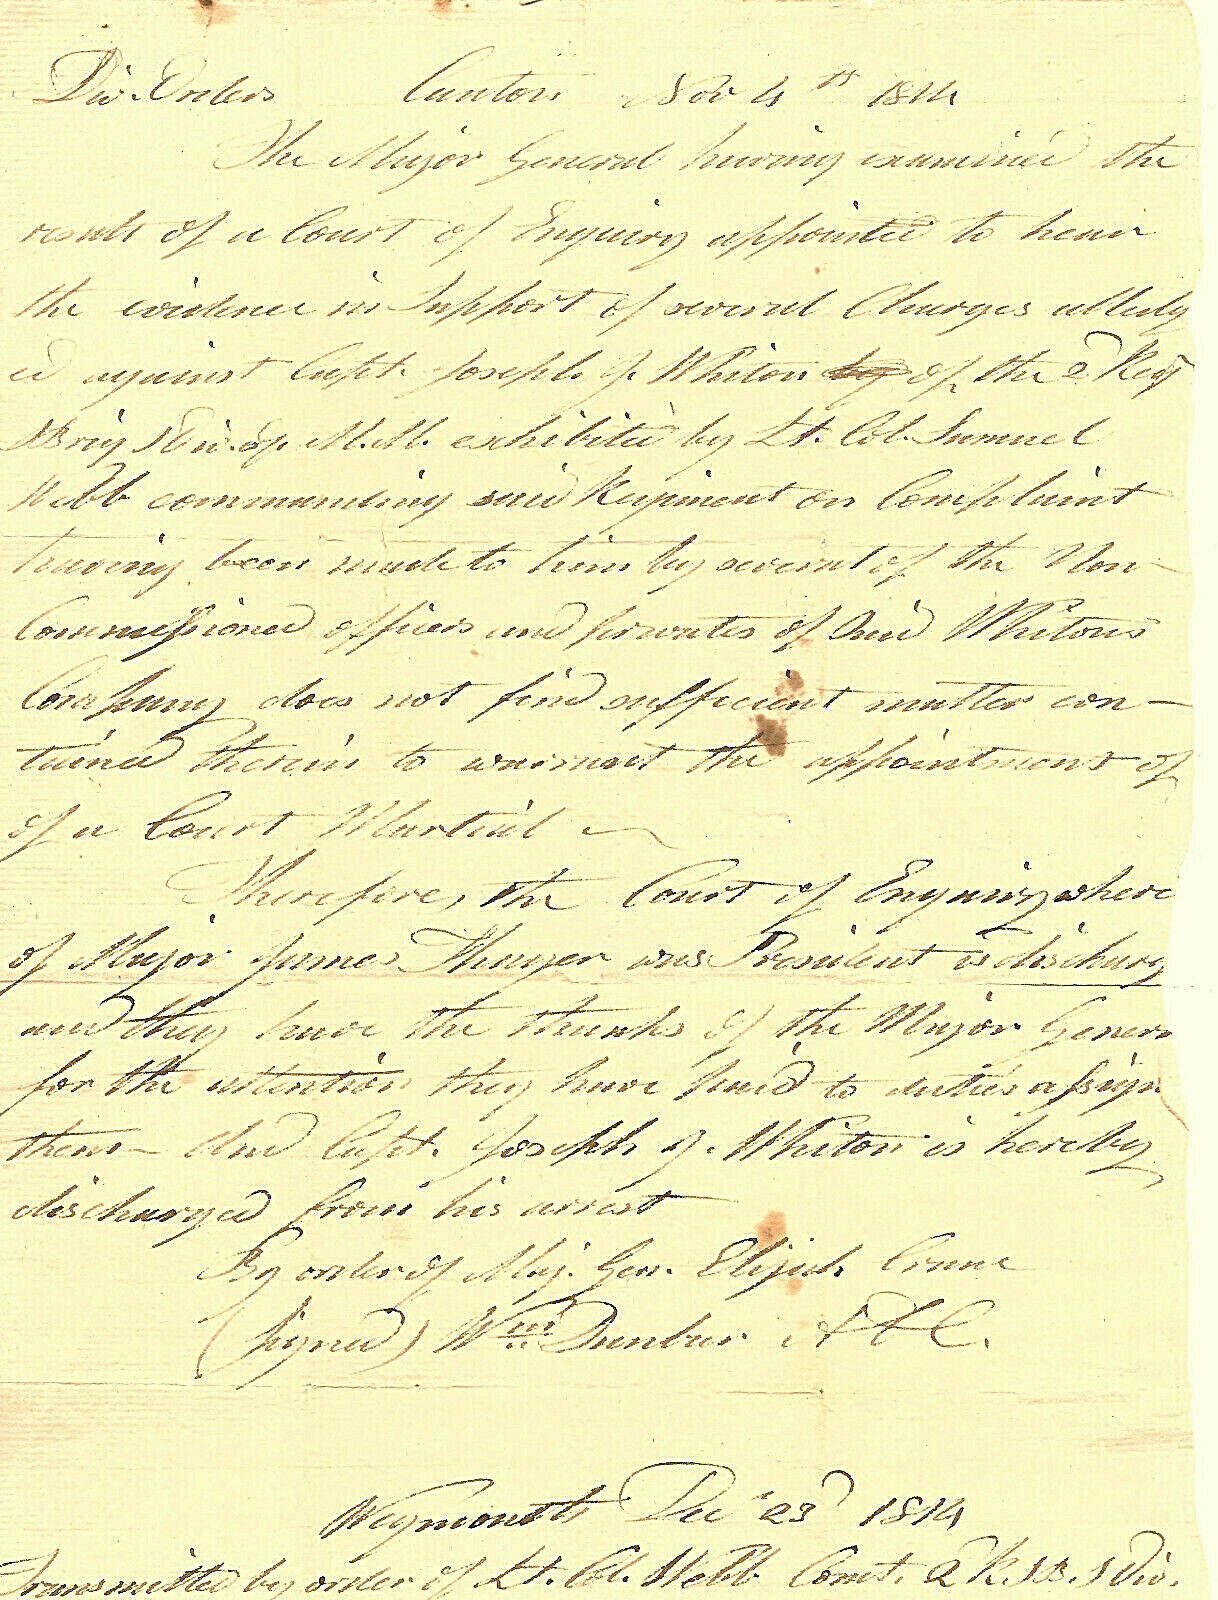 Div. Orders Canton Nov 4th 1814
The Major General having examined the
result of a Court of Enquiry appointed to hear
the evidence in Support of several Charges alledg
ed against Capt. Joseph J. Whiton by of the 2d Regt
1 Brig 1 Div. of M.M. exhibited by Lt. Col. Samuel
Webb commanding said Regiment on Complaint
having been made to him by several of the Non-
Commissioned officers and privates of said Whitons
Company does not find sufficient matter con-
tained therein to warrant the appointment of
of a Court Martial
Therefore, the Court of Enquiry where
of Major James Thayer was President is discharg
and they have the thanks of the Major Genera
for the attention they have paid to duties assign
them- And Capt. Joseph J. Whiton is hereby
discharged from his arrest
By order of Maj. Gen. Elijah Crane
(Signed) Wm Dunbar ADC.
Weymouth Dec 23d 1814
Transmitted by order of Lt. Col. Webb Comt. 2 R. 1 B. 1 Div.